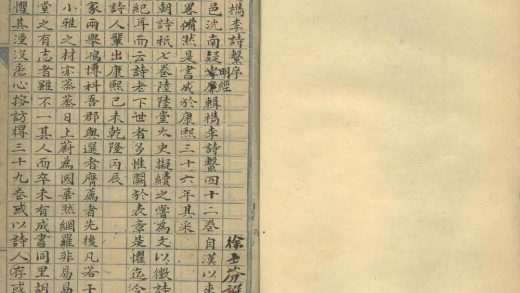 檇李詩繫序
徐士芬譔
明經
邑沈南疑孝廉輯檇李詩繫四十二卷自漢以來
畧備然是書成於康熙三十六年其采
朝詩祇七卷陸陸堂太史擬續之嘗為文以徵詩
紀耳而云詩老下世者多惟闕於表章是懼迄今
詩人輩出康熙己未乾隆丙辰
家兩舉鴻博科吾郡與選者膺薦者先後凡若干
小雅之材亦蒸蒸日上蔚為國華然網羅非易易
堂之有志者雖不一其人而卒未有成書同里胡
懼其湮沒悉心搜訪得三十九卷或以詩人存或